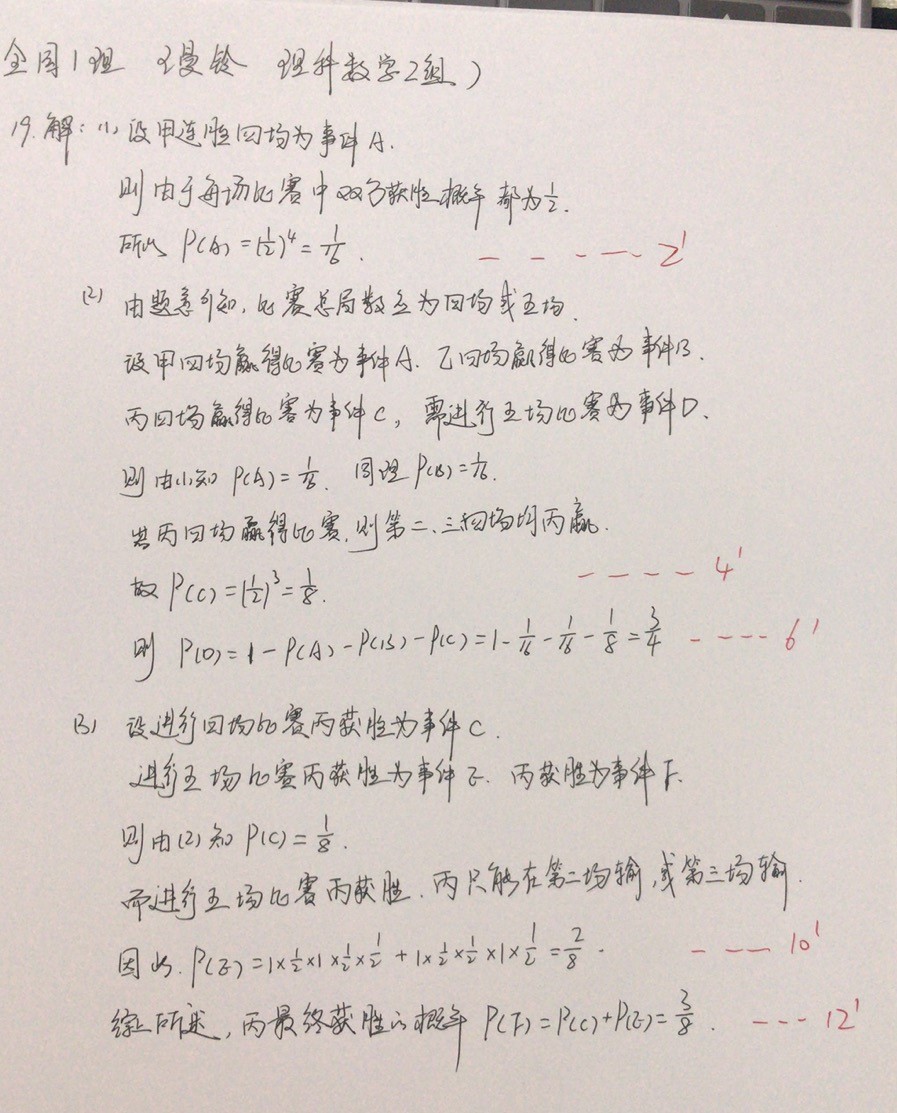 全国1理 理科数学2组)
19.解:(1)设甲连胜四场为事件A.
则由于每场比赛中双方获胜概率都为1/2.
所以 P(A)=(1/2)^4=1/16. ----- 2'
(2) 由题意可知,比赛总局数应为四场或五场.
设甲四场赢得比赛为事件A.乙四场赢得比赛为事件B.
丙四场赢得比赛为事件C,需进行五场比赛为事件D.
则由(1)知 P(A)=1/16. 同理P(B)=1/16.
若丙四场赢得比赛,则第二、三、四场均丙赢.
故P(C)=(1/2)^3=1/8. ---- 4'
则 P(D)=1-P(A)-P(B)-P(C)=1-1/16-1/16-1/8=3/4 ---- 6'
(3) 设进行四场比赛丙获胜为事件C.
进行五场比赛丙获胜为事件E. 丙获胜为事件F.
则由(2)知P(C)=1/8.
而进行五场比赛丙获胜.丙只能在第二场输,或第三场输.
因此.P(E)=1×1/2×1×1/2×1/2+1×1/2×1/2×1×1/2=2/8. --- 10'
综上所述,丙最终获胜的概率 P(F)=P(C)+P(E)=3/8. --- 12'